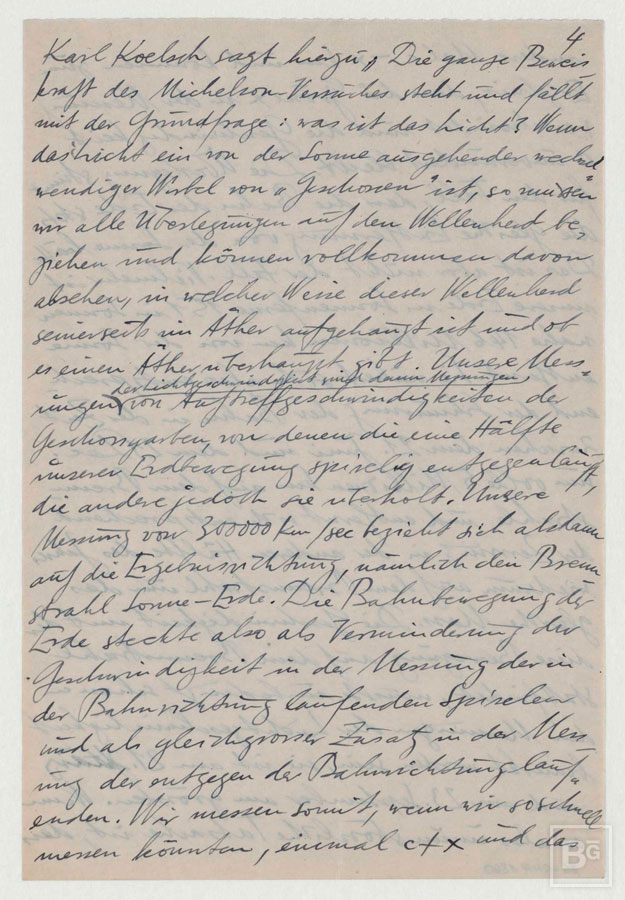 4
Karl Koelsch sagt hierzu „Die ganze Beweis
kraft des Michelson-Versuches steht und fällt
mit der Grundfrage: was ist das Licht? Wenn
das Licht ein von der Sonne ausgehender wechsel=
wendiger Wirbel von „Geschossen" ist, so müssen
wir alle Überlegungen auf den Wellenherd be,
ziehen und können vollkommen davon
absehen, in welcher Weise dieser Wellenherd
seinerseits im Äther aufgehängt ist und ob
es einen Äther überhaupt gibt. Unsere Mess=
der Lichtgeschwindigkeit sind dann Messungen
ungen von Auftreffgeschwindigkeiten der
Geschossgarben, von denen die eine Hälfte
unserer Erdbewegung spiralig entgegenläuft,
die andere jedoch sie überholt. Unsere
Messung von 300000 Km/sec bezieht sich alsdann
auf die Ergebnisrichtung, nämlich den Brenn
strahl Sonne-Erde. Die Bahnbewegung der
Erde steckte also als Verminderung der
Geschwindigkeit in der Messung der in
der Bahnrichtung laufenden Spiralen
und als gleichgrosser Zusatz in der Mess
ung der entgegen der Bahnrichtung lauf„
enden. Wir messen somit, wenn wir so schnell
messen könnten, einmal c+x und das
BG